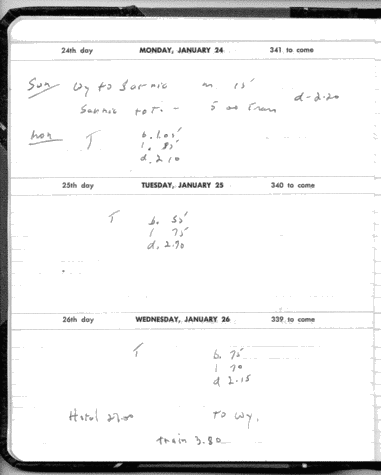 24th day MONDAY, JANUARY 24 341 to come
Sun Wy to Sarnia m 15
d-2.20
Sarnia to T. - 5 00 train
Mon T b. 1.05
l. 85
d. 2.10
25th day TUESDAY, JANUARY 25 340 to come
T b. 55
l 75
d. 2.70
26th day WEDNESDAY, JANUARY 26 339 to come
T b. 75
l 70
d 2.15
Hotel to Wy.
train 3.80